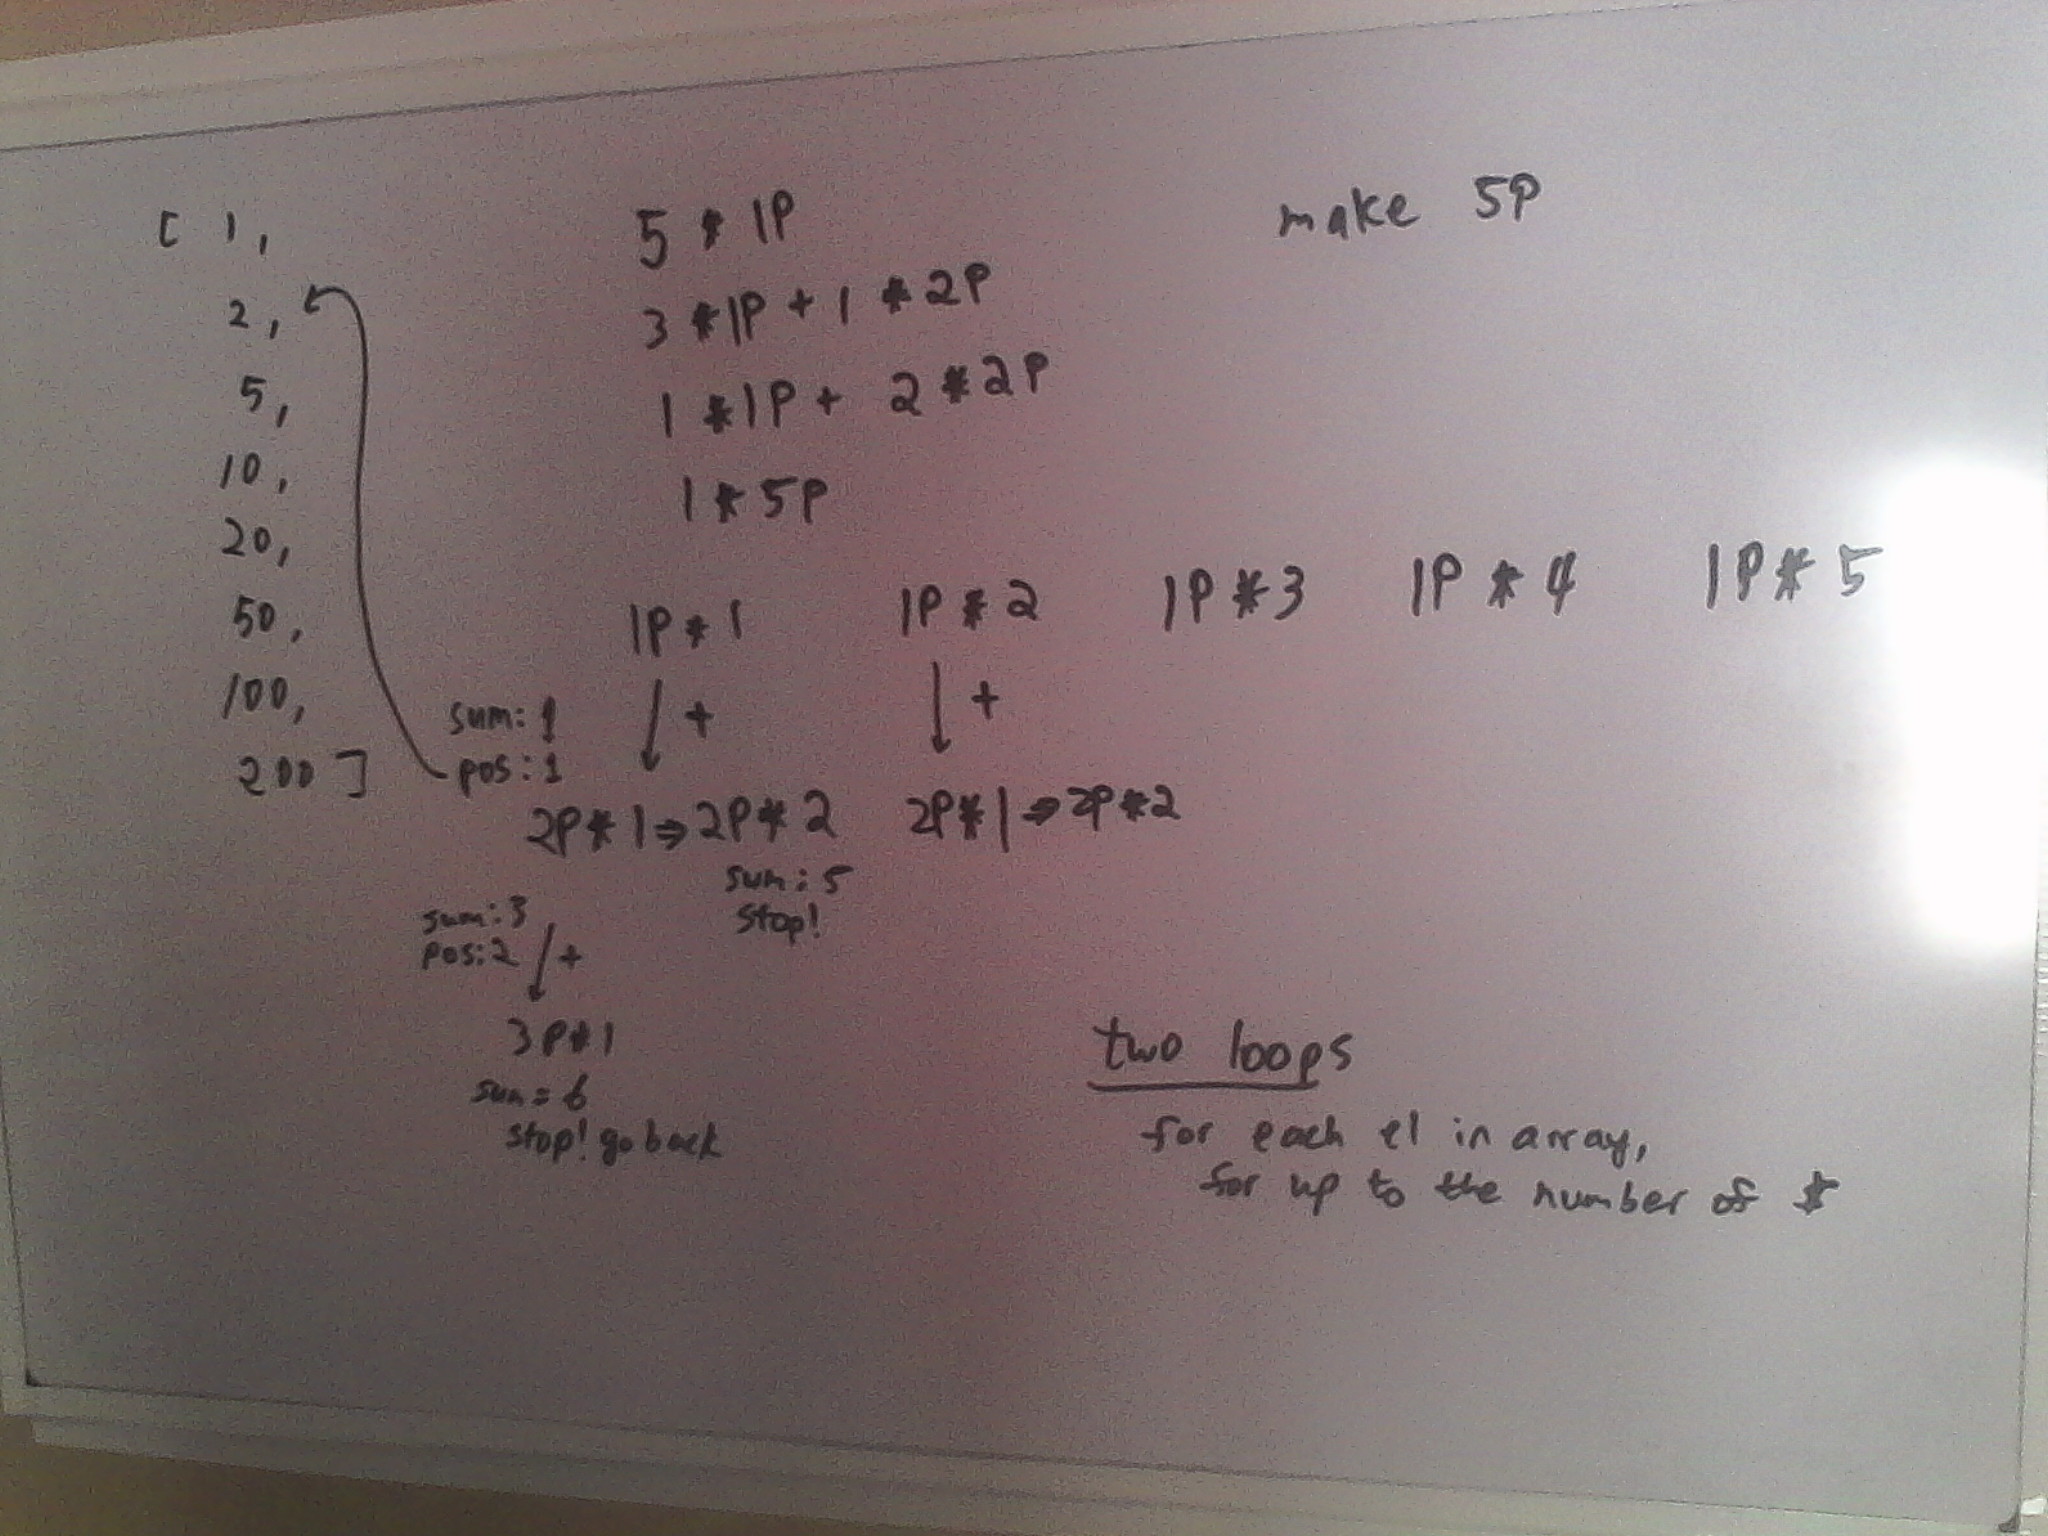 [ 1,
2,
5,
10,
20,
50,
100,
200 ]
5 * 1P
3 * 1P + 1 * 2P
1 * 1P + 2 * 2P
1 * 5P
make 5P
1P * 1 1P * 2 1P * 3 1P * 4 1P * 5
sum: 1
pos: 1
+ +
2P * 1 ⇒ 2P * 2 2P * 1 ⇒ 2P * 2
sum: 5
stop!
sum: 3
pos: 2
+
3P * 1
sum = 6
stop! go back
two loops
for each el in array,
for up to the number of $